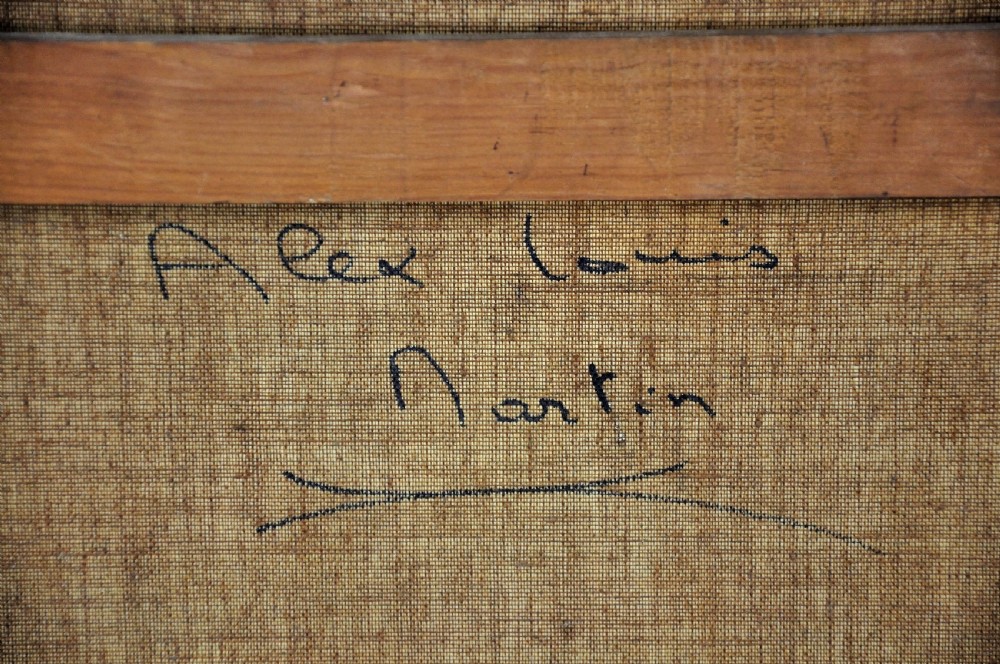 Alex Louis
Martin